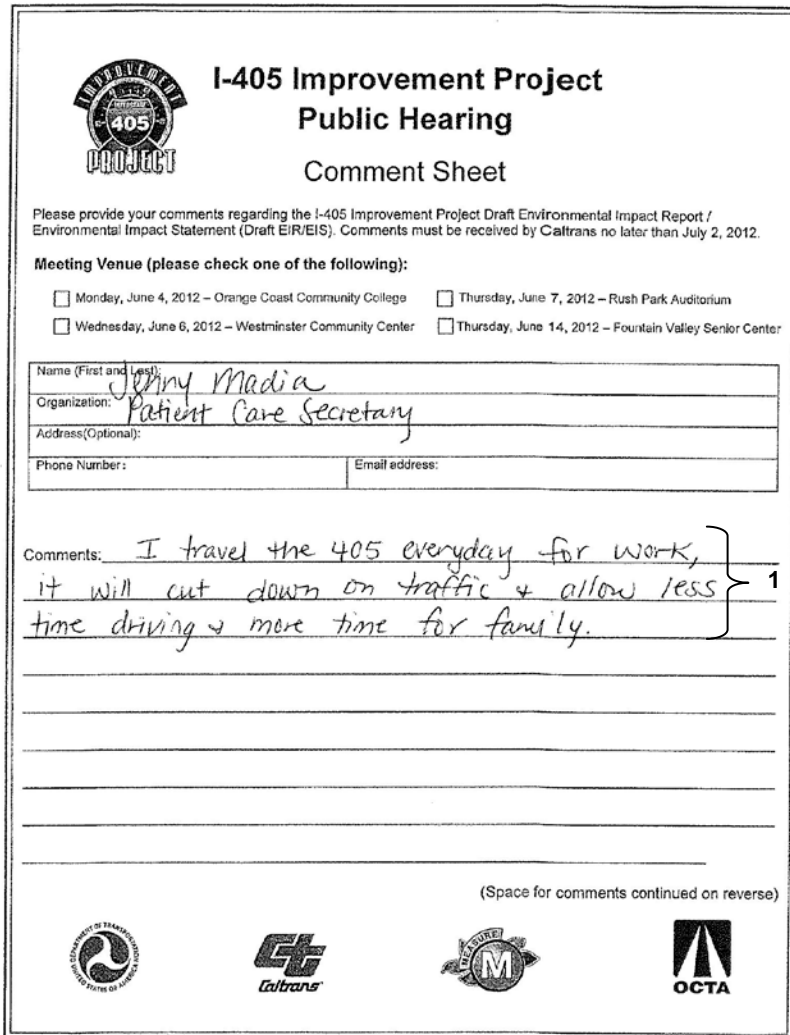 IMPROVEMENT
INTERSTATE
405
PROJECT
I-405 Improvement Project
Public Hearing
Comment Sheet
Please provide your comments regarding the I-405 Improvement Project Draft Environmental Impact Report /
Environmental Impact Statement (Draft EIR/EIS). Comments must be received by Caltrans no later than July 2, 2012.
Meeting Venue (please check one of the following):
Monday, June 4, 2012 – Orange Coast Community College
Thursday, June 7, 2012 – Rush Park Auditorium
Wednesday, June 6, 2012 – Westminster Community Center
Thursday, June 14, 2012 – Fountain Valley Senior Center
Name (First and Last): Jenny Madia
Organization: Patient Care Secretary
Address(Optional):
Phone Number:
Email address:
Comments: I travel the 405 everyday for work,
it will cut down on traffic & allow less
time driving & more time for family.
1
(Space for comments continued on reverse)
DEPARTMENT OF TRANSPORTATION
UNITED STATES OF AMERICA
Caltrans
MEASURE
M
OCTA